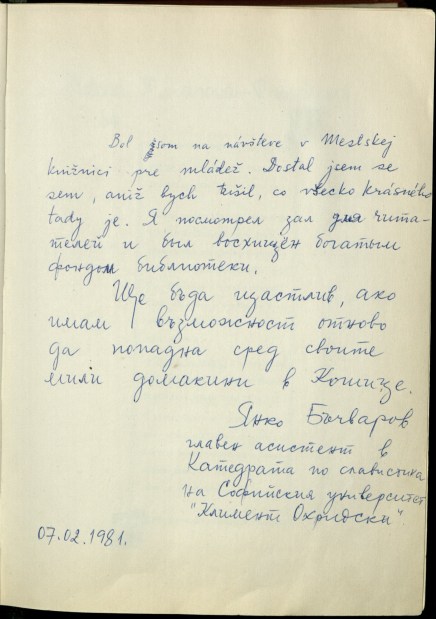 Bol som na návšteve v Mestskej
knižnici pre mládež. Dostal jsem se
sem, aniž bych tušil, co všecko krásného
tady je. Я посмотрел зал для чита-
телей и был восхищён богатым
фондом библиотеки.
Ще бъда щастлив, ако
имам възможност отново
да попадна сред своите
мили домакини в Кошице.
Янко Бъчваров
главен асистент в
Катедрата по славистика
на Софийския университет
"Климент Охридски"
07.02.1981.